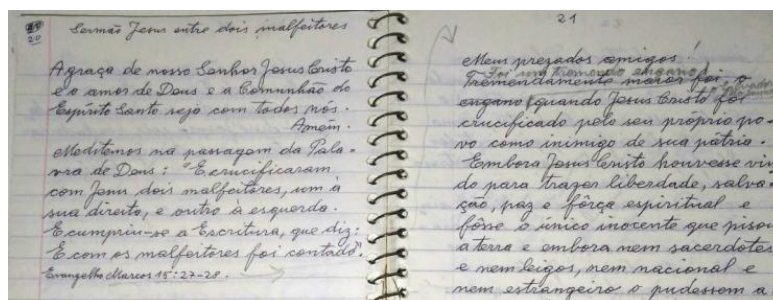 20
Sermão Jesus entre dois malfeitores
A graça de nosso Senhor Jesus Cristo
e o amor de Deus e a Comunhão do
Espírito Santo seja com todos nós.
Amém.
Meditemos na passagem da Pala-
vra de Deus: "E crucificaram
com Jesus dois malfeitores, um à
sua direita, e outro à esquerda.
E cumpriu-se a Escritura, que diz:
E com os malfeitores foi contado".
Evangelho Marcos 15:27-28.
21
Meus prezados amigos!
Foi um tremendo engano
Tremendamente maior foi, o
engano quando Jesus Cristo foi
crucificado pelo seu próprio po-
vo como inimigo de sua pátria.
Embora Jesus Cristo houvesse vin
do para trazer liberdade, salva-
ção, paz e fôrça espiritual e
fôsse o único inocente que pisou
a terra e embora nem sacerdotes
e nem leigos, nem nacional e
nem estrangeiro o pudessem a